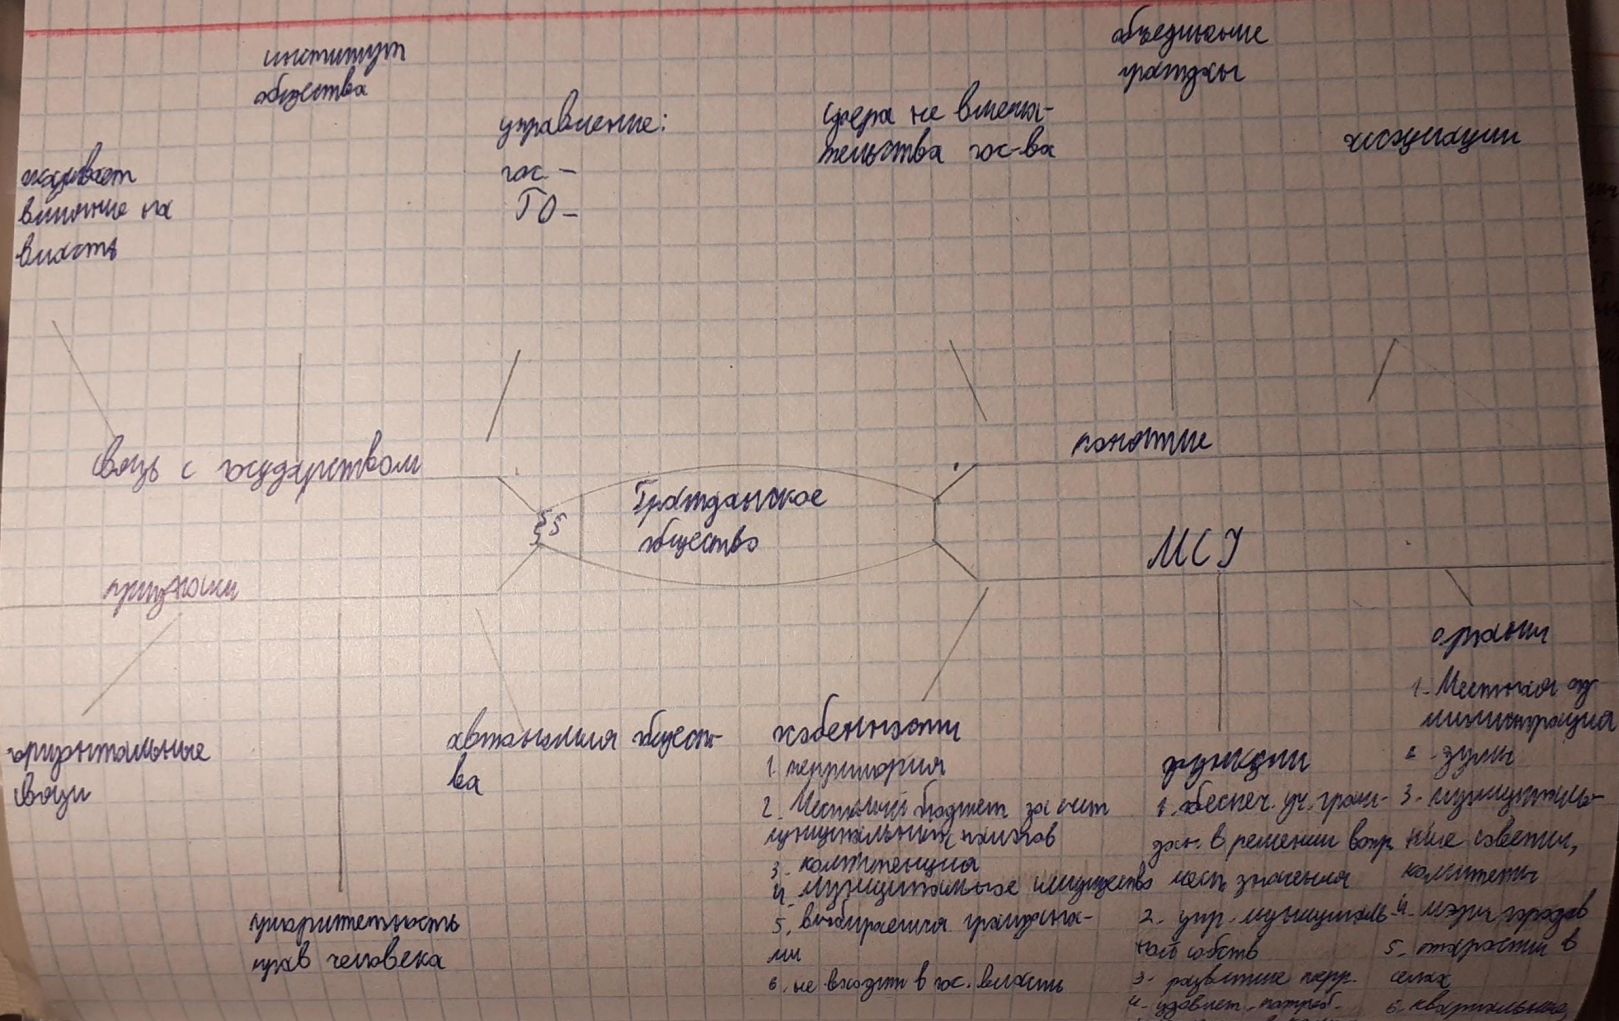 институт
общества
объединение
граждан
управление:
гос. –
ГО –
сфера не вмеша-
тельства гос-ва
ассоциации
оказывает
влияние на
власть
связь с государством
понятие
§5
Гражданское
общество
МСУ
признаки
органы
1. Местная ад-
министрация
2. думы
3. муниципаль-
ные советы,
комитеты
4. мэры городов
5. старосты в
селах
6. квартальные,
горизонтальные
связи
автономия общест-
ва
приоритетность
прав человека
особенности
1. территория
2. Местный бюджет за счет
муниципальных налогов
3. компетенция
4. муниципальное имущество
5. выбирается граждана-
ми
6. не входит в гос. власть
функции
1. обеспеч. уч. граж-
дан. в решении вопр.
мест. значения
2. упр. муниципаль-
ной собств
3. развитие терр.
4. удовлет. потреб-